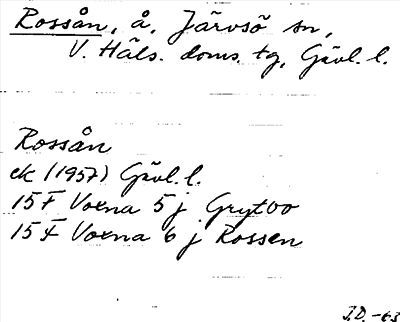 Rossån, å, Järvsö sn,
V. Häls. doms. tg, Gävl. l.
Rossån
ek (1957) Gävl. l.
15 F Voxna 5 j Grytvo
15 F Voxna 6 j Rossen
J.D. -63